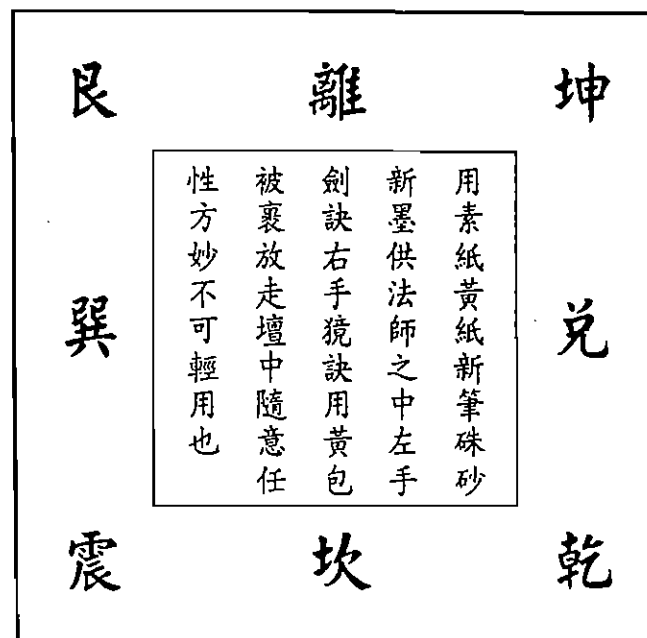 坤
離
艮
兌
巽
乾
坎
震
用素紙黃紙新筆硃砂
新墨供法師之中左手
劍訣右手獍訣用黃包
被裹放走壇中隨意任
性方妙不可輕用也